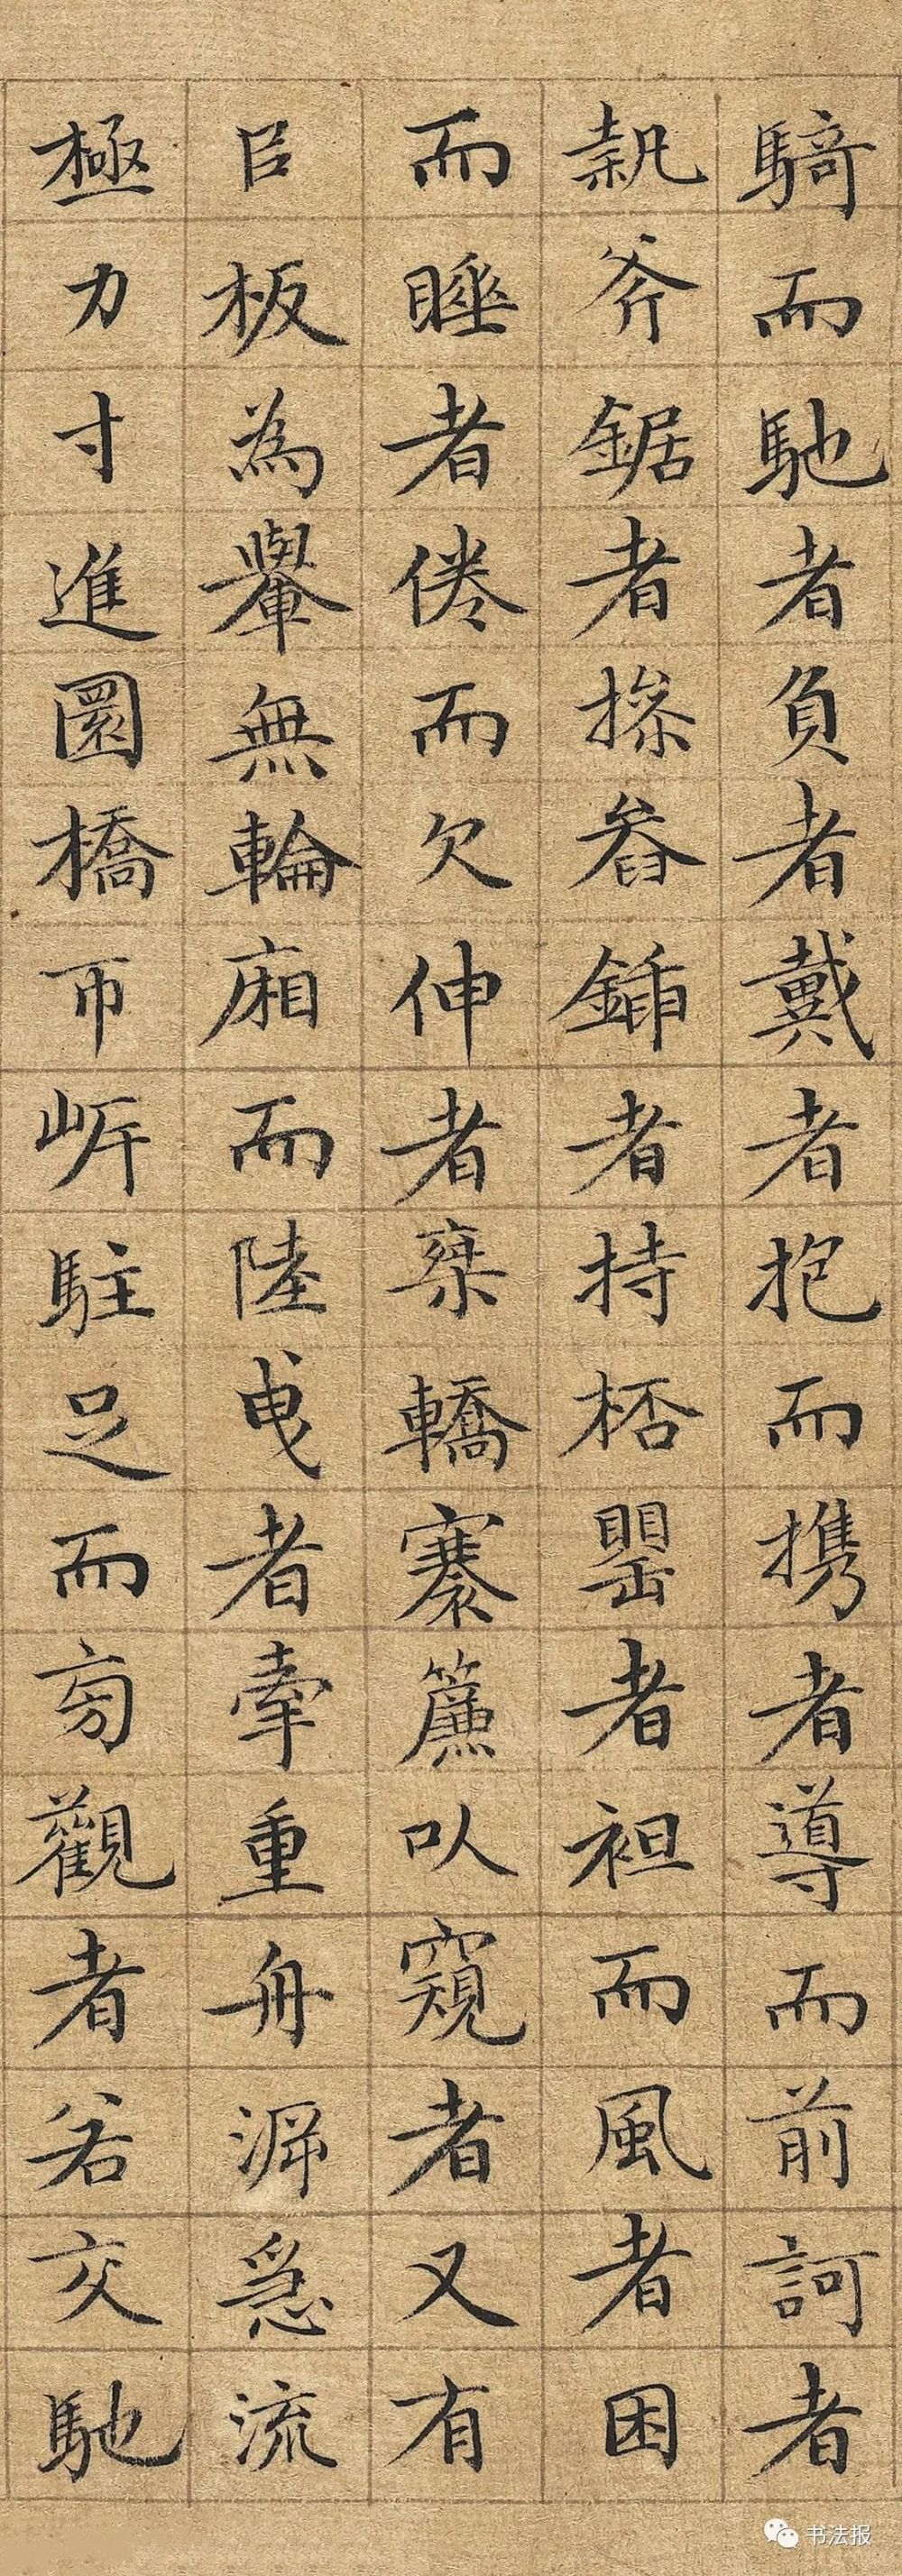 騎而馳者負者戴者抱而携者導而前訶者
執斧鋸者操畚鍤者持桮罌者袒而風者困
而睡者倦而欠伸者椉轎褰簾以窺者又有
以板為轝無輪廂而陸曳者牽重舟泝急流
極力寸進圜橋帀岸駐足而旁觀者若交馳
书法报